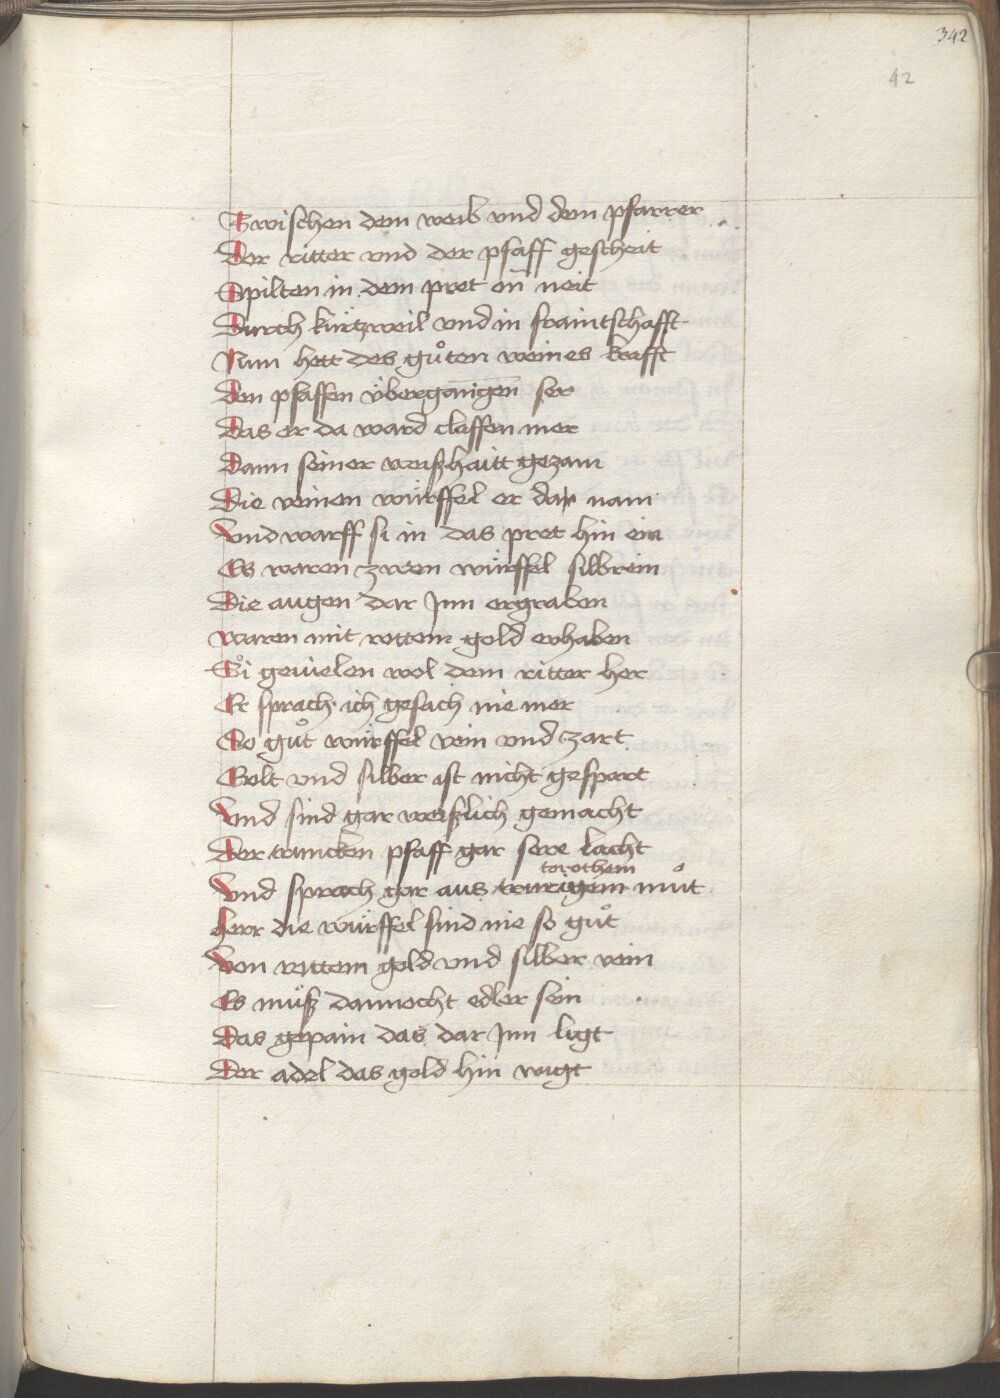 342
42
Zwischen dem weib vnd dem pfarrer
Der ritter vnd der pfaff gescheit
Spilten in dem pret on neit
Durch kurtzweil vnd in fraintschafft
Nun hett des gůten weines krafft
Den pfaffen übergangen ser
Das er da ward claffen mer
Dann seiner weißhaitt gezam
Die veinen würffel er dar nam
Vnd warff si in das pret hin ein
Es waren zwen würffel silbrein
Die augen dar Jnn ergraben
waren mit rottem gold erhaben
Si geuielen wol dem ritter her
Er sprach ich gesach nie mer
So gůt würffel vein vnd zart
Golt vnd silber ist nicht gespart
Vnd sind gar weißlich gemacht
Der truncken pfaff gar sere lacht
torothem
Vnd sprach gar aus trurigem můt
Herr die würffel sind nie so gůt
Von rottem gold vnd silber vein
Es můß dannocht edler sein
Das gepain das dar Jnn ligt
Der adel das gold hin wigt